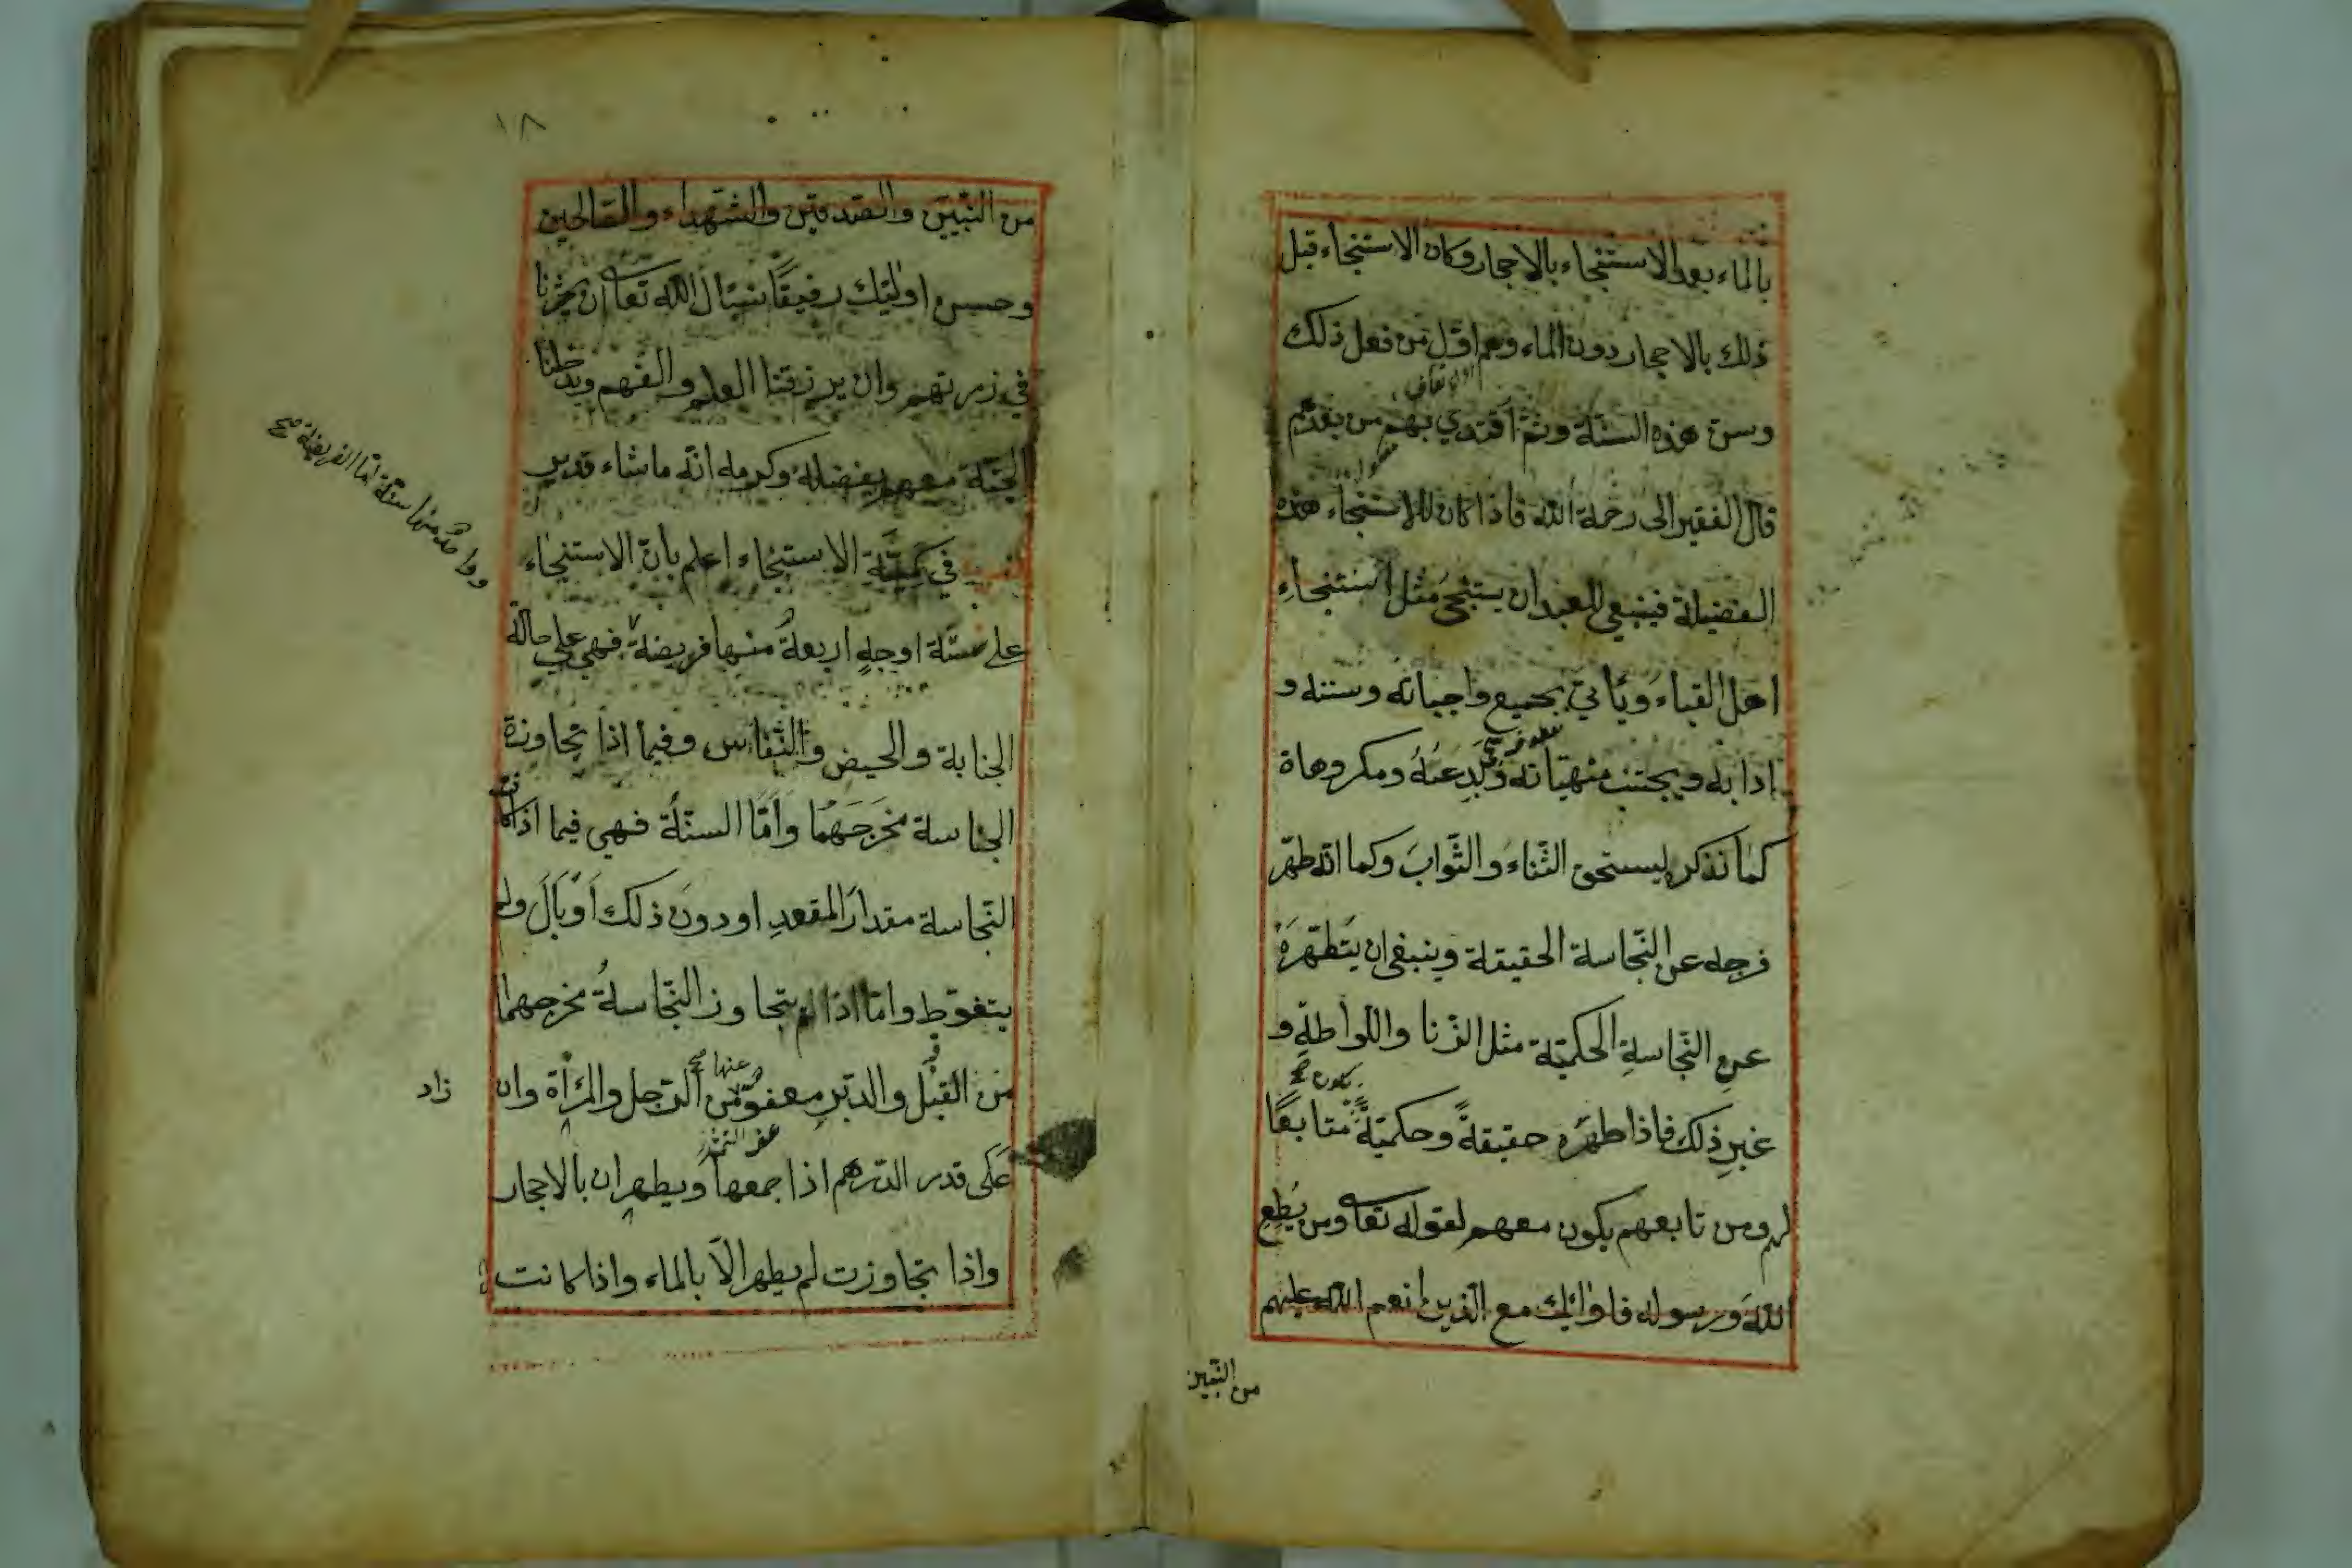 بالماء بعد الاستنجاء بالاحجار وكان الاستنجاء قبل
ذلك بالاحجار دون الماء وهم اوّل من فعل ذلك
وسن هذه السنّة وثم اقتدي بهم من بعدهم
قال الفقير الى رحمة الله فاذا كان للاستنجاء هذه
الفضيلة فينبغي للعبد ان يستنجى مثل استنجاءِ
اهل القباء ويأتي بجميع واجباته وسننه و
ادابه ويجتنب منهيّاته وبدعته ومكروهاة
كما نذكر ليستحق الثّناءَ والثّوابَ وكما انّه طهّر
فرجه عن النّجاسة الحقيقة وينبغى ان يتطهّرَهُ
عنِ النّجاسةِ الحكميّة مثل الزّنا واللّواطةِ و
يكون صح
غيرِ ذلك فاذا طهّره حقيقةً وحكميّةً متابعًا
لهم ومن تابعهم يكون معهم لقوله تعا ومن يُطِعِ
اللهَ ورسوله فاولٰئك مع الّذين انعم الله عليهم
من النّبيين
١٨
من النّبيين والصّديقين والشّهداء والصّالحين
وحسن اولٰئك رفيقًا نسئال الله تعا ان يحشرنا
في زمرتهم وان يرزقنا العلم والفهم ويدخلنا
الجنّة معهم بفضله وكرمه انّه ماشاء قدير
في كميّة الاستنجاء اعلم بانّ الاستنجاء
على ستّة اوجهٍ اربعةٌ منها فريضة فهي على حالة
وواحدة منها سنّة امّا الفريضة صح
الجنابة والحيض والنّفاس وفيما اذا تجاوزة
النجاسة مخرَجَهُمَا وَأمّا السنّةُ فهي فيما اذا كانت
النّجاسة مقدارَ المقعدِ او دونَ ذلك اَوْبَالَ ولم
يتغوّط وامّا اذا لم يتجاوز النّجاسةُ مخرجهما
من القبْل والدّبرِ معفوّ عنها صح من الرّجل والمَرْأة وان
زاد
عَلى قدر الدّرهم اذا جمعها ويطهران بالاحجار
واذا تجاوزت لم يطهر الّا بالماء واذا كانت